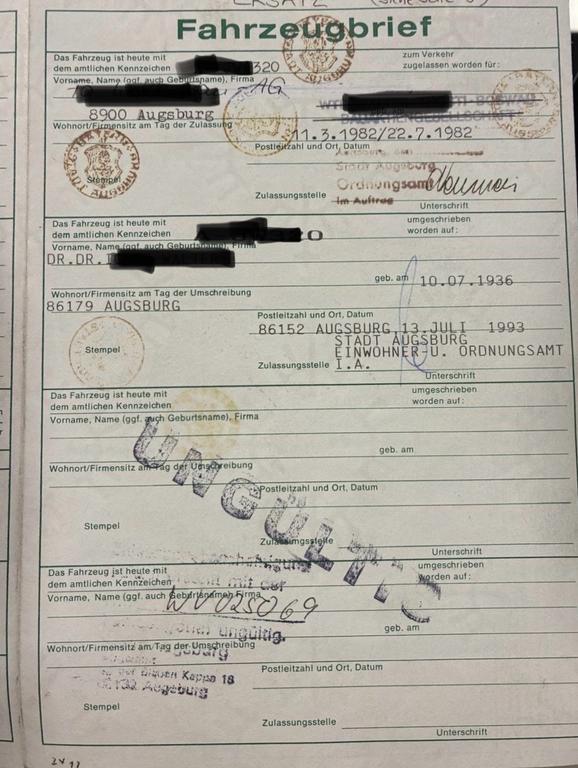 ERSATZ
Fahrzeugbrief
Das Fahrzeug ist heute mit
dem amtlichen Kennzeichen 320
zum Verkehr
zugelassen worden für:
Vorname, Name (ggf. auch Geburtsname), Firma
AG
8900 Augsburg
Wohnort/Firmensitz am Tag der Zulassung
11.3.1982/22.7.1982
Postleitzahl und Ort, Datum
Stadt Augsburg
Ordnungsamt
Im Auftrag
Stempel
Zulassungsstelle
Unterschrift
Das Fahrzeug ist heute mit
dem amtlichen Kennzeichen
umgeschrieben
worden auf:
Vorname, Name (ggf. auch Geburtsname), Firma
DR.DR.
geb. am 10.07.1936
Wohnort/Firmensitz am Tag der Umschreibung
86179 AUGSBURG
Postleitzahl und Ort, Datum
86152 AUGSBURG, 13.JULI 1993
STADT AUGSBURG
EINWOHNER-U. ORDNUNGSAMT
Stempel
Zulassungsstelle I.A.
Unterschrift
Das Fahrzeug ist heute mit
dem amtlichen Kennzeichen
umgeschrieben
worden auf:
Vorname, Name (ggf. auch Geburtsname), Firma
geb. am
Wohnort/Firmensitz am Tag der Umschreibung
UNGÜLTIG
Postleitzahl und Ort, Datum
Stempel
Zulassungsstelle
Unterschrift
Das Fahrzeug ist heute mit
dem amtlichen Kennzeichen
umgeschrieben
worden auf:
mit der
Vorname, Name (ggf. auch Geburtsname), Firma
WV025069
ungültig.
geb. am
Wohnort/Firmensitz am Tag der Umschreibung
Augsburg
Kappe 18
Augsburg
Postleitzahl und Ort, Datum
Stempel
Zulassungsstelle
Unterschrift